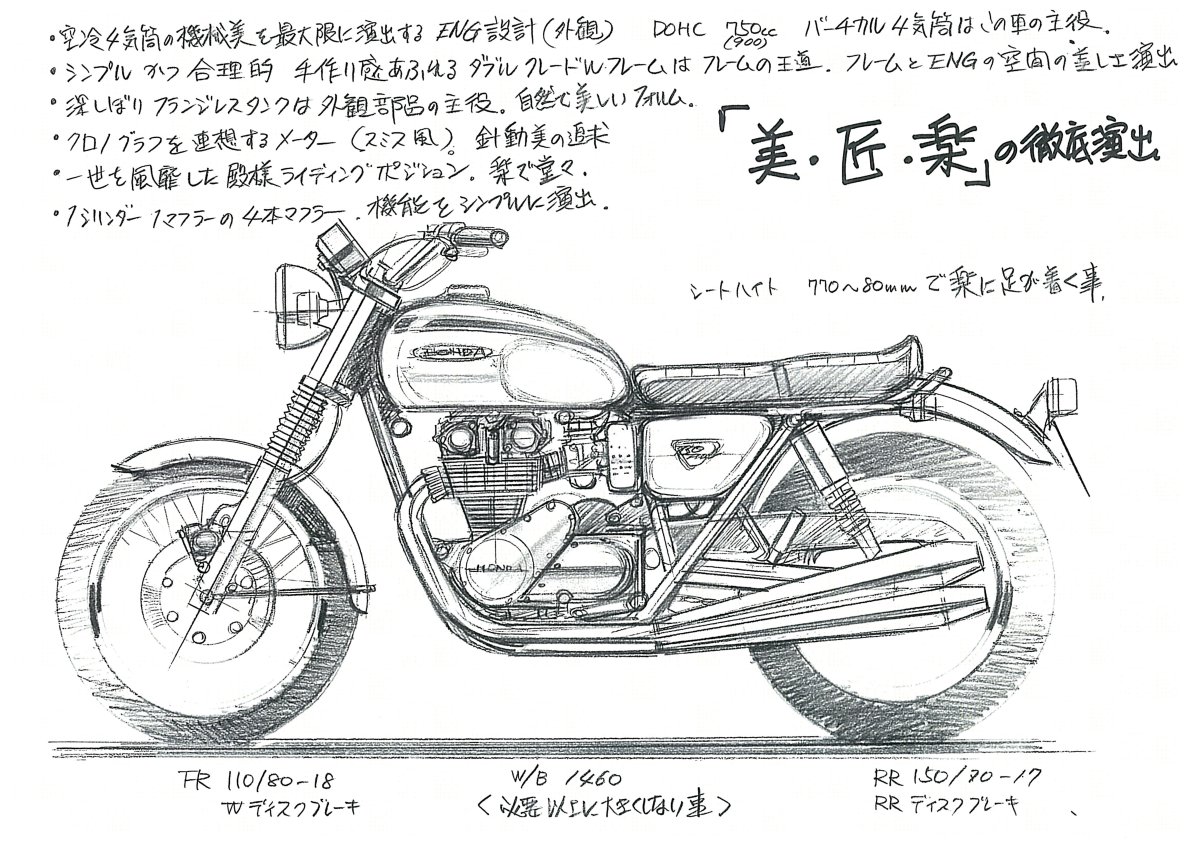 ・空冷4気筒の機械美を最大限に演出する ENG設計(外観) DOHC 750cc (900) バーチカル4気筒はこの車の主役.
・シンプル かつ 合理的 手作り感あふれる ダブルクレードルWフレームは フレームの王道. フレームとENGの空間の美しさ演出
・深しぼり フランジレスタンクは 外観部品の主役. 自然で美しいフォルム.
・クロノグラフを連想するメーター(スミス風)。 針動美の追求
・一世を風靡した殿様ライディングポジション. 楽で堂々.
・1シリンダー 1マフラーの4本マフラー. 機能をシンプルに演出.
「美・匠・楽」の徹底演出
シートハイト 770〜80mmで楽に足が着く事.
HONDA
750
HONDA
FR 110/80-18
Wディスクブレーキ
W/B 1460
<必要以上に大きくしない事>
RR 150/70-17
RR ディスクブレーキ